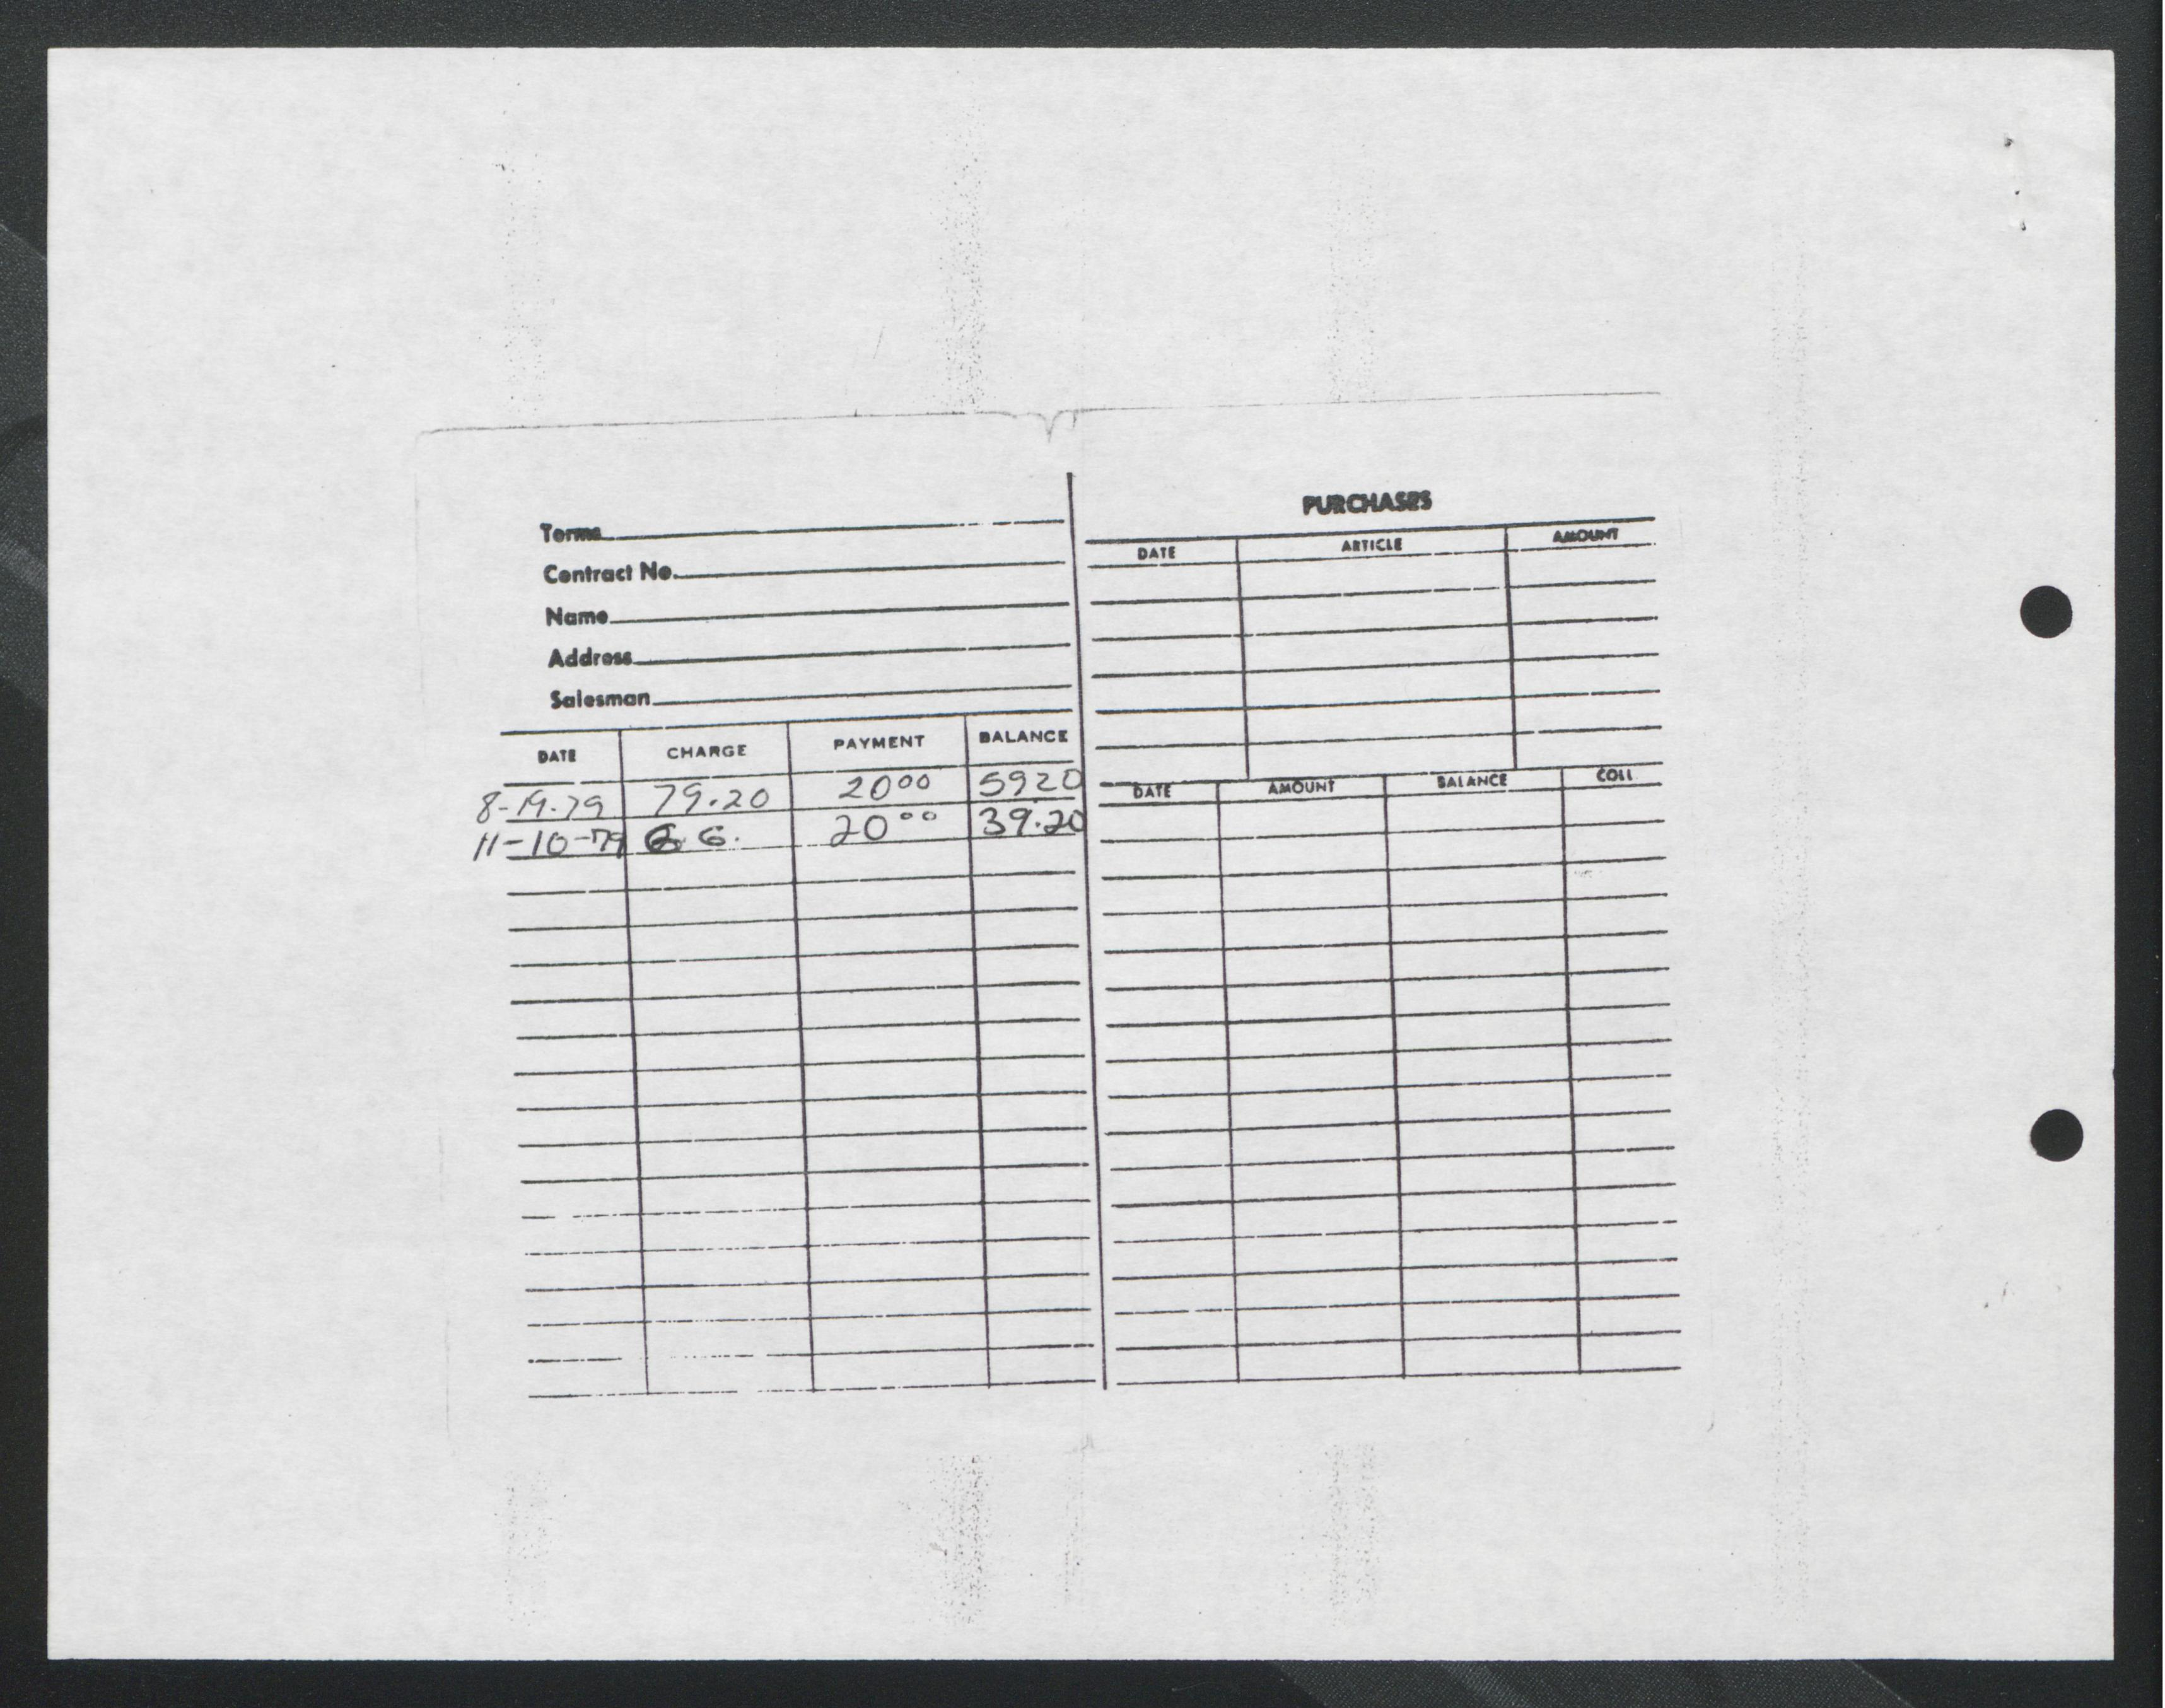 Terms
Contract No.
Name
Address
Salesman
DATE CHARGE PAYMENT BALANCE
8-19-79 79.20 20 00 59 20
11-10-79 G G. 20 00 39.20
PURCHASES
DATE ARTICLE AMOUNT
DATE AMOUNT BALANCE COLL